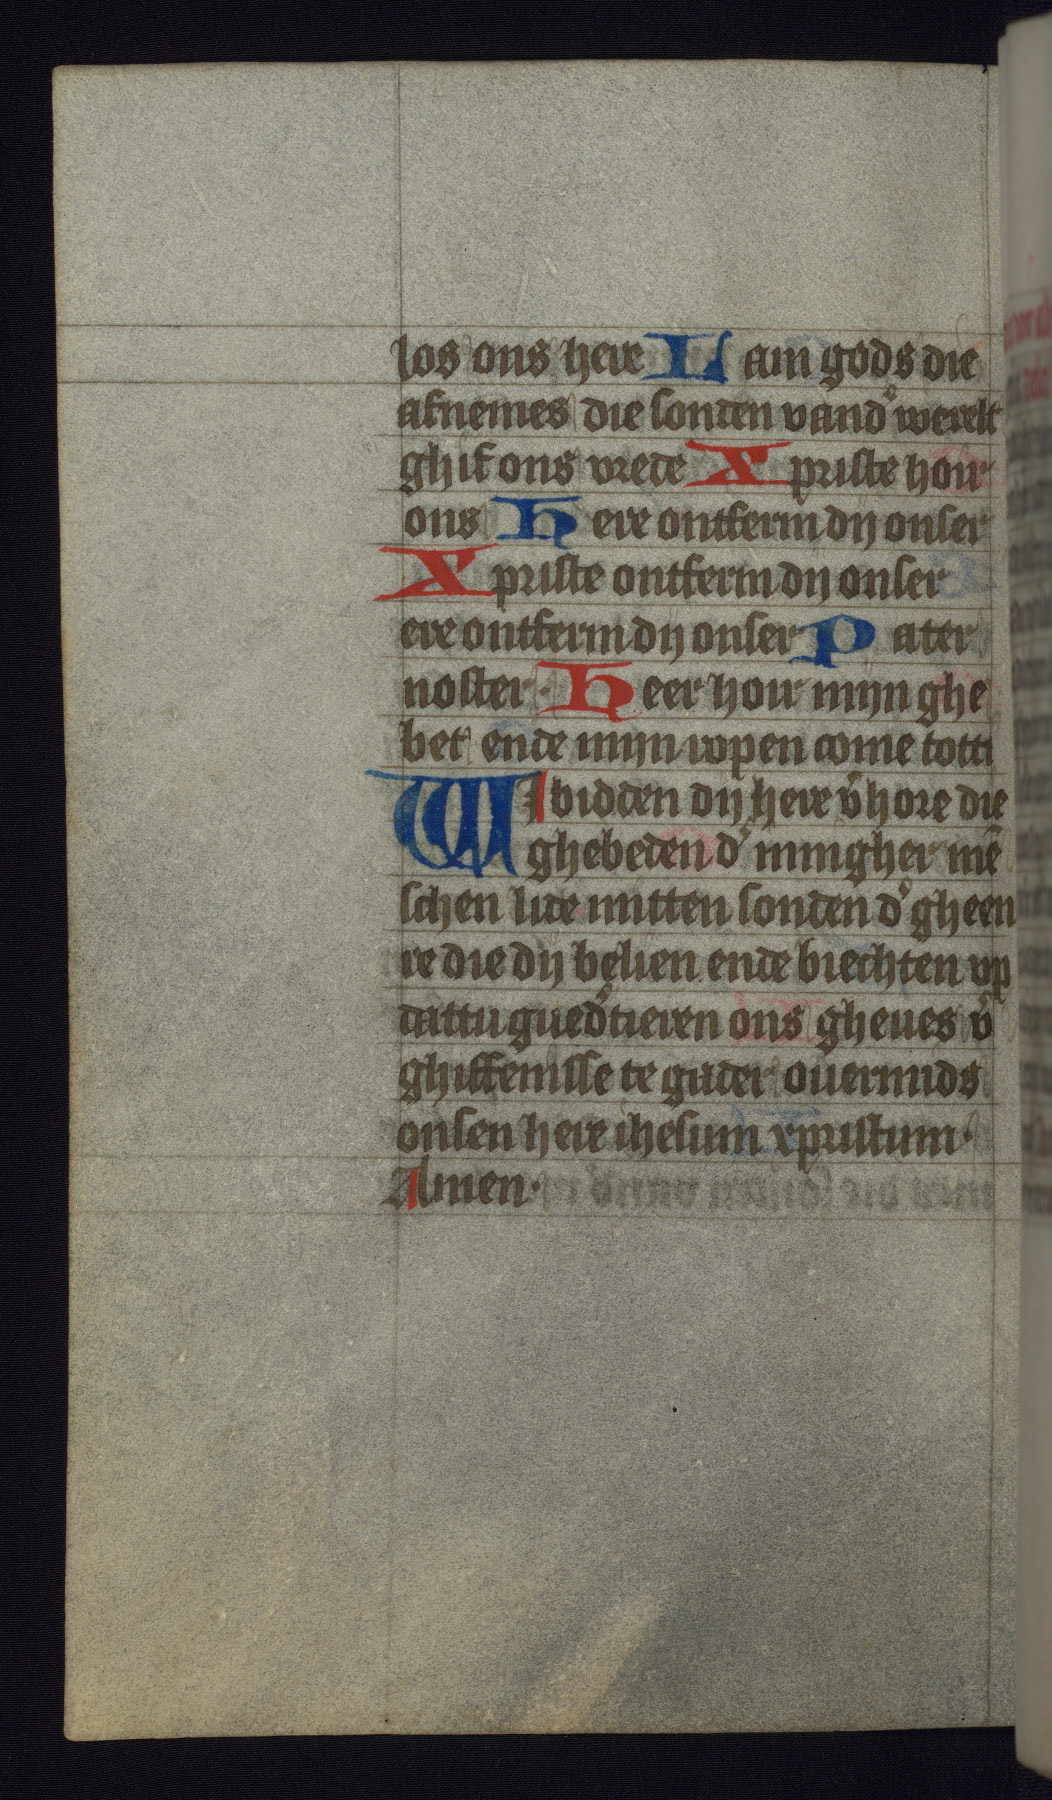 los ons here Lam gods die
afnemes die sonden vand' werelt
ghif ons vrede Xpriste hoir
ons Here ontferm dij onser
Xpriste ontferm dij onser
ere ontferm dij onser Pater
noster· Heer hoir mijn ghe
bet ende mijn ropen come totti
WI bidden dij here v'hore die
ghebeden d' innigher mē
schen lude mitten sonden d' gheen
re die dij belien ende biechten op
dattu gued'tieren ons gheues v'
ghiffenisse te gader ouermids
onsen here ihesum xpristum·
Amen·